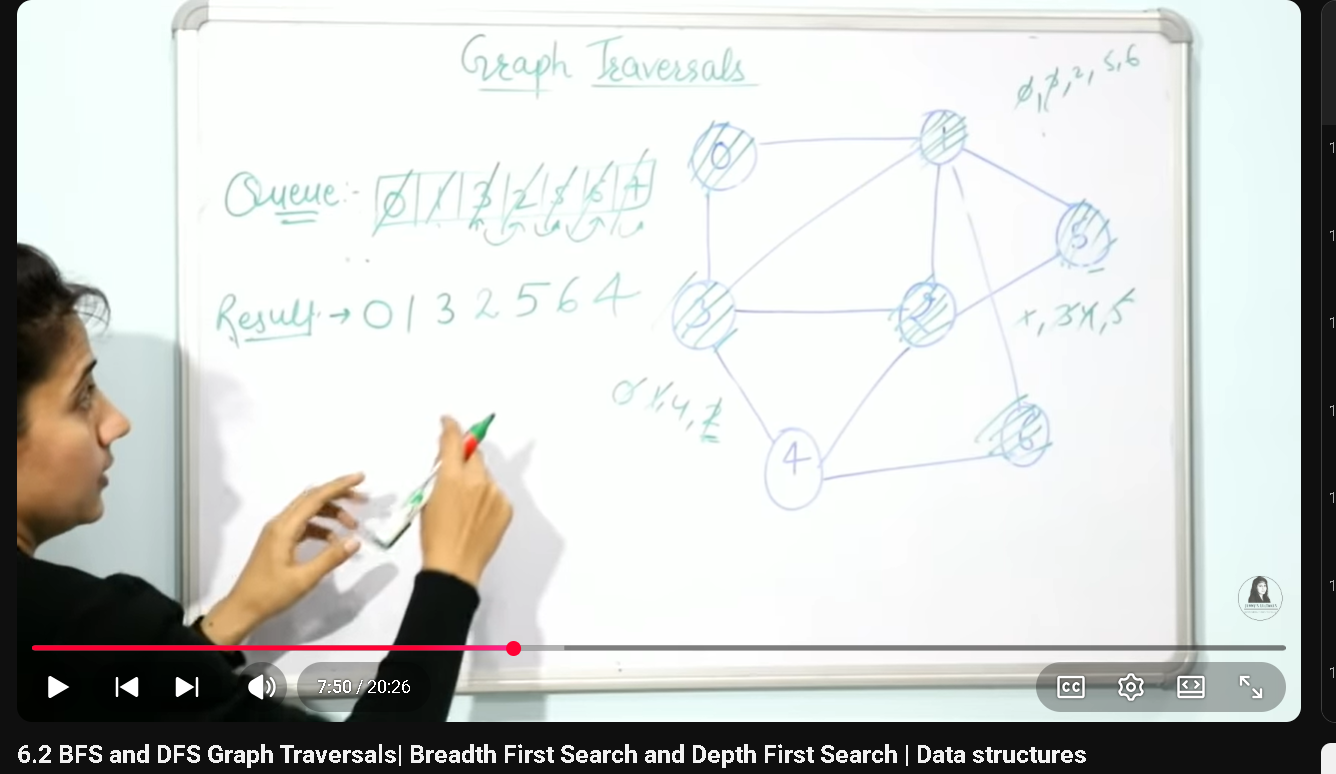 Graph Traversals
0, 1, 2, 5, 6
Queue:- 0 1 3 2 5 6 4
Result → 0 1 3 2 5 6 4
0
1
5
3
2
3
5
0 1, 4, 2
4
6
7:50 / 20:26
CC
6.2 BFS and DFS Graph Traversals| Breadth First Search and Depth First Search | Data structures